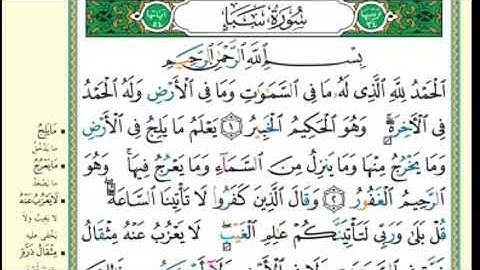 سُورَةُ سَبَإٍ
بِسْمِ ٱللَّهِ ٱلرَّحْمَٰنِ ٱلرَّحِيمِ
ٱلْحَمْدُ لِلَّهِ ٱلَّذِى لَهُۥ مَا فِى ٱلسَّمَٰوَٰتِ وَمَا فِى ٱلْأَرْضِ وَلَهُ ٱلْحَمْدُ
فِى ٱلْءَاخِرَةِ ۚ وَهُوَ ٱلْحَكِيمُ ٱلْخَبِيرُ ١ يَعْلَمُ مَا يَلِجُ فِى ٱلْأَرْضِ
وَمَا يَخْرُجُ مِنْهَا وَمَا يَنزِلُ مِنَ ٱلسَّمَآءِ وَمَا يَعْرُجُ فِيهَا ۚ وَهُوَ
ٱلرَّحِيمُ ٱلْغَفُورُ ٢ وَقَالَ ٱلَّذِينَ كَفَرُوا۟ لَا تَأْتِينَا ٱلسَّاعَةُ ۖ
قُلْ بَلَىٰ وَرَبِّى لَتَأْتِيَنَّكُمْ عَٰلِمِ ٱلْغَيْبِ ۖ لَا يَعْزُبُ عَنْهُ مِثْقَالُ
مَا يَلِجُ
ما يَدْخُلُ
مَا يَعْرُجُ
ما يَصْعَدُ
لَا يَعْزُبُ عَنْهُ
لا يَغِيبُ ولا
يَخْفَى عليه
مِثْقَالُ ذَرَّةٍ